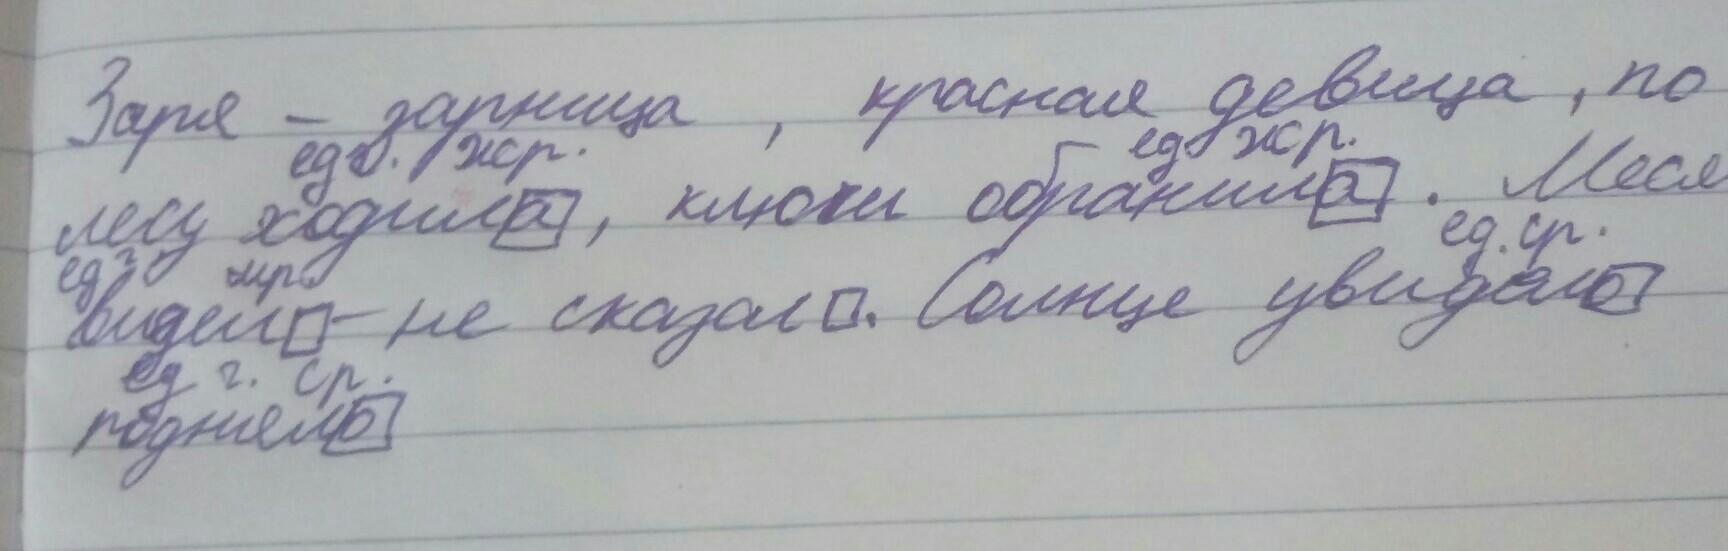 Заря – зарница, красная девица, по
ед.ч. ж.р. ед ж.р.
лесу ходила, ключи обранила. Меся
ед ч. м.р. ед. ср.
видел – не сказал. Солнце увидело
ед ч. ср.
подняло